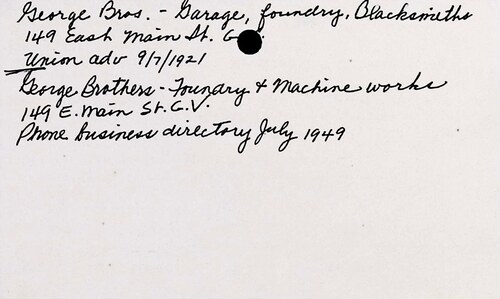 George Bros. - Garage, foundry, Blacksmiths
149 East Main St. G
Union adv 9/7/1921
George Brothers - Foundry & Machine works
149 E. Main St. G.V.
Phone business directory July 1949